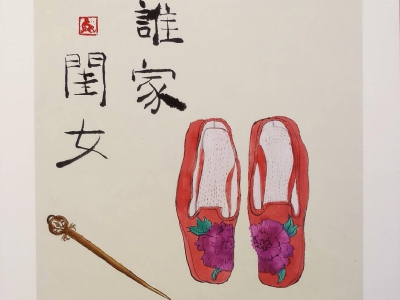 誰家
閨女